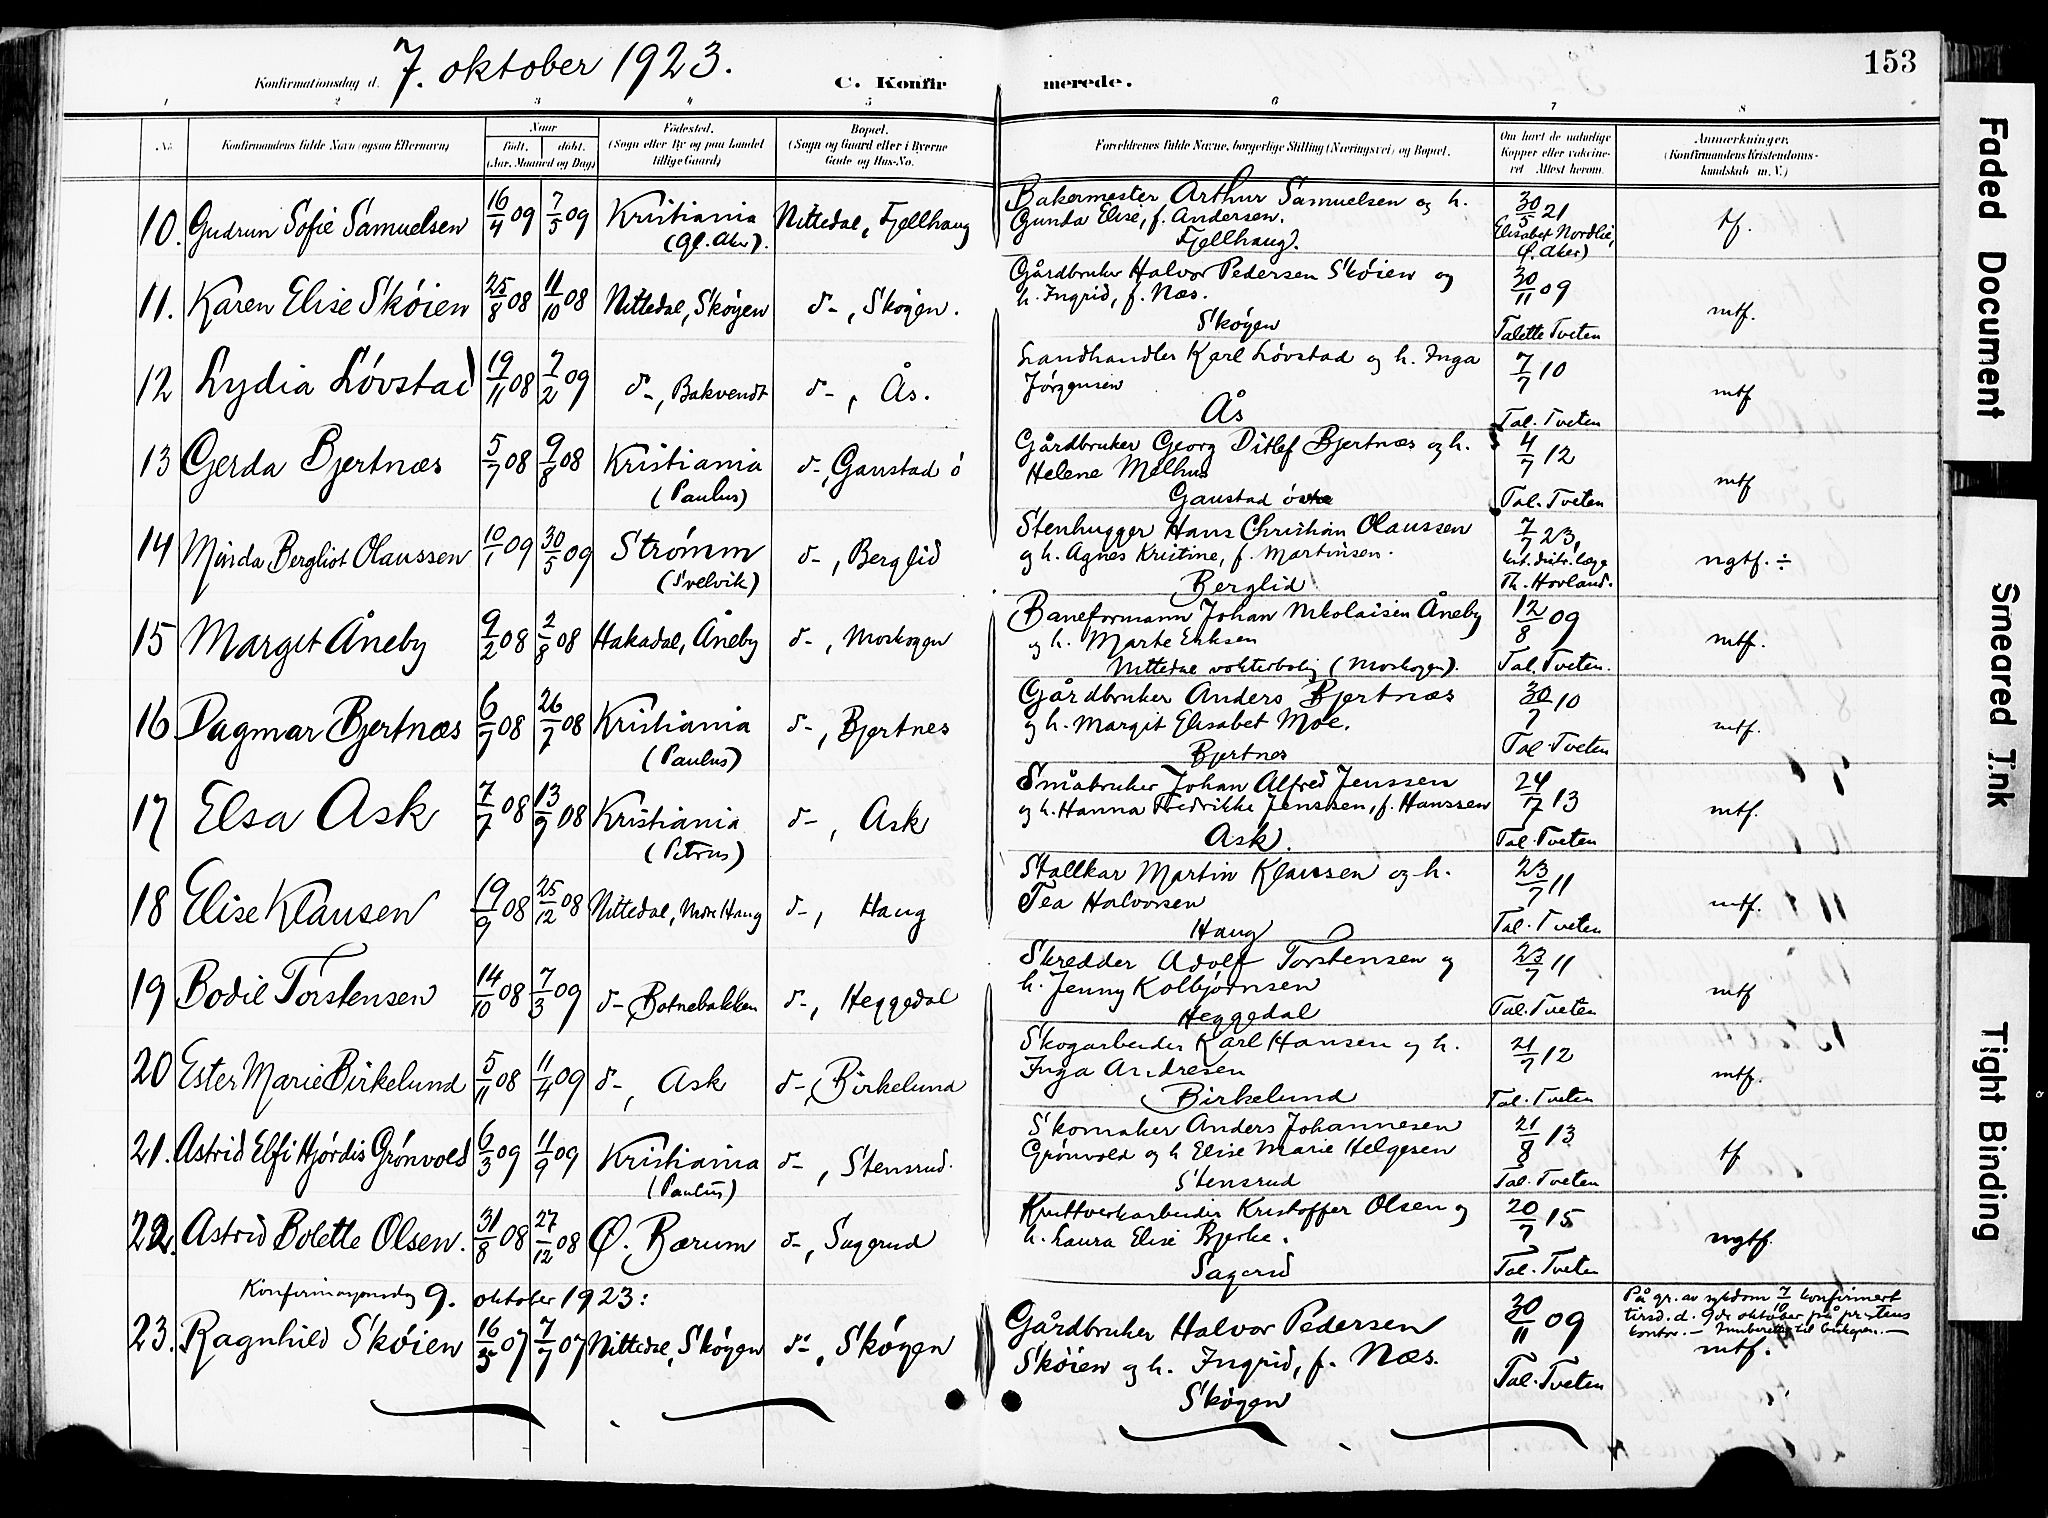 7. oktober 1923.
153
Konfirmationsdag d.
C. Konfirmerede.
1 2 3 4 5 6 7 8
No.
Konfirmandens fulde Navn (ogsaa Efternavn)
Naar
født. døbt.
(Aar, Maaned og Dag)
Fødested.
(Sogn eller By og paa Landet
tillige Gaard)
Bopæl.
(Sogn og Gaard eller i Byerne
Gade og Hus-No.
Forældrenes fulde Navne, borgerlige Stilling (Næringsvei) og Bopæl.
Om havt de naturlige
Kopper eller vaccine-
ret Attest herom.
Anmærkninger.
(Konfirmandens Kristendoms-
kundskab m. V.)
10. Gudrun Sofie Samuelsen 16/4 09 7/5 09 Kristiania (Gl. Aker). Nittedal, Fjellhaug
Bakermester Arthur Samuelsen og h.
Gunda Elise, f. Andersen.
Fjellhaug.
30/5 21
Elisabet Nordlie,
(Ø. Aker)
tf.
11. Karen Elise Skøien 25/8 08 11/10 08 Nittedal, Skøyen d-, Skøyen.
Gårdbruker Halvor Pedersen Skøien og
h. Ingrid, f. Næs.
Skøyen
30/11 09
Talette Tveten
mtf.
12 Lydia Løvstad 19/11 08 7/2 09 d-, Bakvendt d-, Ås.
Landhandler Karl Løvstad og h. Inga
Jørgensen
Ås
7/7 10
Tal. Tveten
mtf
13 Gerda Bjertnæs 5/7 08 9/8 08 Kristiania (Paulus) d-, Gaustad ø
Gårdbruker Georg Ditlef Bjertnæs og h.
Helene Melhus
Gaustad østre
4/7 12
Tal. Tveten
mtf
14 Minda Bergliot Olaussen 10/1 09 30/5 09 Strømm (Svelvik) d-, Berglid
Stenhugger Hans Christian Olaussen
og h. Agnes Kristine, f. Martinsen.
Berglid
7/7 23,
distr. læge
Th. Hovland.
ngtf. ÷
15 Margit Åneby 9/2 08 2/8 08 Hakadal, Åneby d-, Moskogen
Baneformann Johan Nikolaisen Åneby
og h. Marte Eriksen
Nittedal vokterbolig (Moskogen).
12/8 09
Tal. Tveten.
mtf.
16 Dagmar Bjertnæs 6/7 08 26/7 08 Kristiania (Paulus) d-, Bjertnes
Gårdbruker Anders Bjertnæs
og h. Margit Elisabet Moe.
Bjertnes
30/7 10
Tal. Tveten
mtf.
17 Elsa Ask 7/7 08 13/9 08 Kristiania (Petrus) d-, Ask
Småbruker Johan Alfred Jenssen
og h. Hanna Fredrikke Jenssen, f. Hanssen
Ask.
24/7 13
Tal. Tveten
mtf.
18 Elise Klausen 19/9 08 25/12 08 Nittedal, Haug d-, Haug
Stallkar Martin Klaussen og h.
Tea Halvorsen
Haug
23/7 11
Tal. Tveten
mtf.
19 Bodil Torstensen 14/10 08 7/3 09 d-, Botnebakken d-, Heggedal
Skredder Adolf Torstensen og
h. Jenny Kolbjørnsen
Heggedal
23/7 11
Tal. Tveten
mtf
20 Ester Marie Birkelund 5/11 08 11/4 09 d-, Ask d-, Birkelund
Skogarbeider Karl Hansen og h.
Inga Andresen
Birkelund
21/7 12
Tal. Tveten
mtf.
21. Astrid Elfi Hjørdis Grønvold 6/3 09 11/9 09 Kristiania (Paulus) d-, Stensrud.
Skomaker Anders Johannesen
Grønvold og h Elise Marie Helgesen
Stensrud
21/8 13
Tal. Tveten
tf
22. Astrid Bolette Olsen. 31/8 08 27/12 08 Ø. Bærum d-, Sagerud
Kruttverkarbeider Kristoffer Olsen og
h. Laura Elise Bjerke.
Sagerud
20/7 15
Tal. Tveten
ngtf.
Konfirmasjonsdag 9. oktober 1923:
23. Ragnhild Skøien 16/3 07 7/7 07 Nittedal, Skøyen d-, Skøyen
Gårdbruker Halvor Pedersen
Skøien og h. Ingrid, f. Næs.
Skøyen
30/11 09
Tal. Tveten
På gr. av sykdom 7/10 konfirmert
tirsd. d. 9de oktober på prestens
kontor. — Innberettet til biskopen. —
mtf.
Faded Document
Smeared Ink
Tight Binding